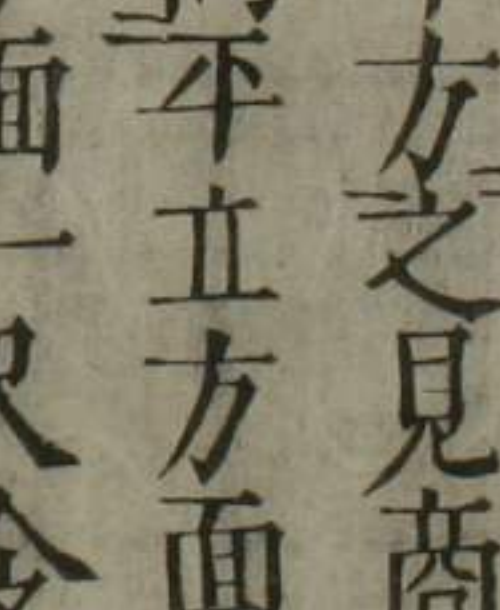 方之見商
平立方面
面一尺